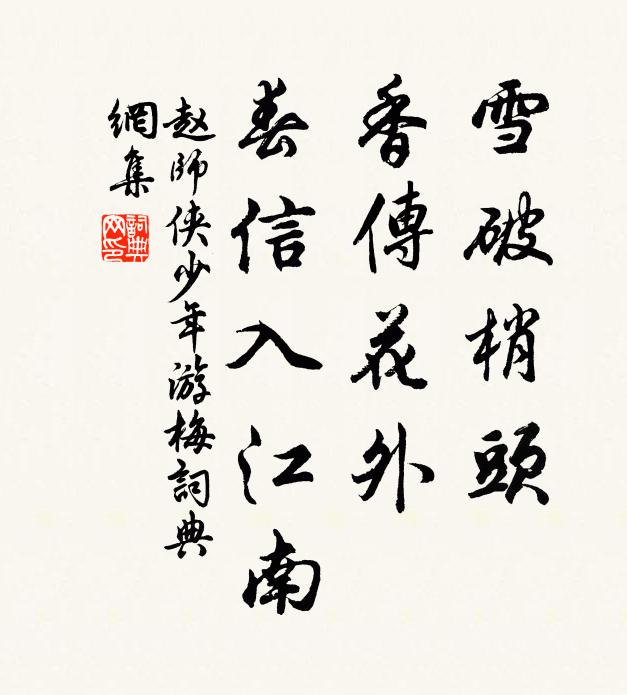 雪破梢頭
香傳花外
春信入江南
赵師侠少年游梅詞典
網集
詞典网印